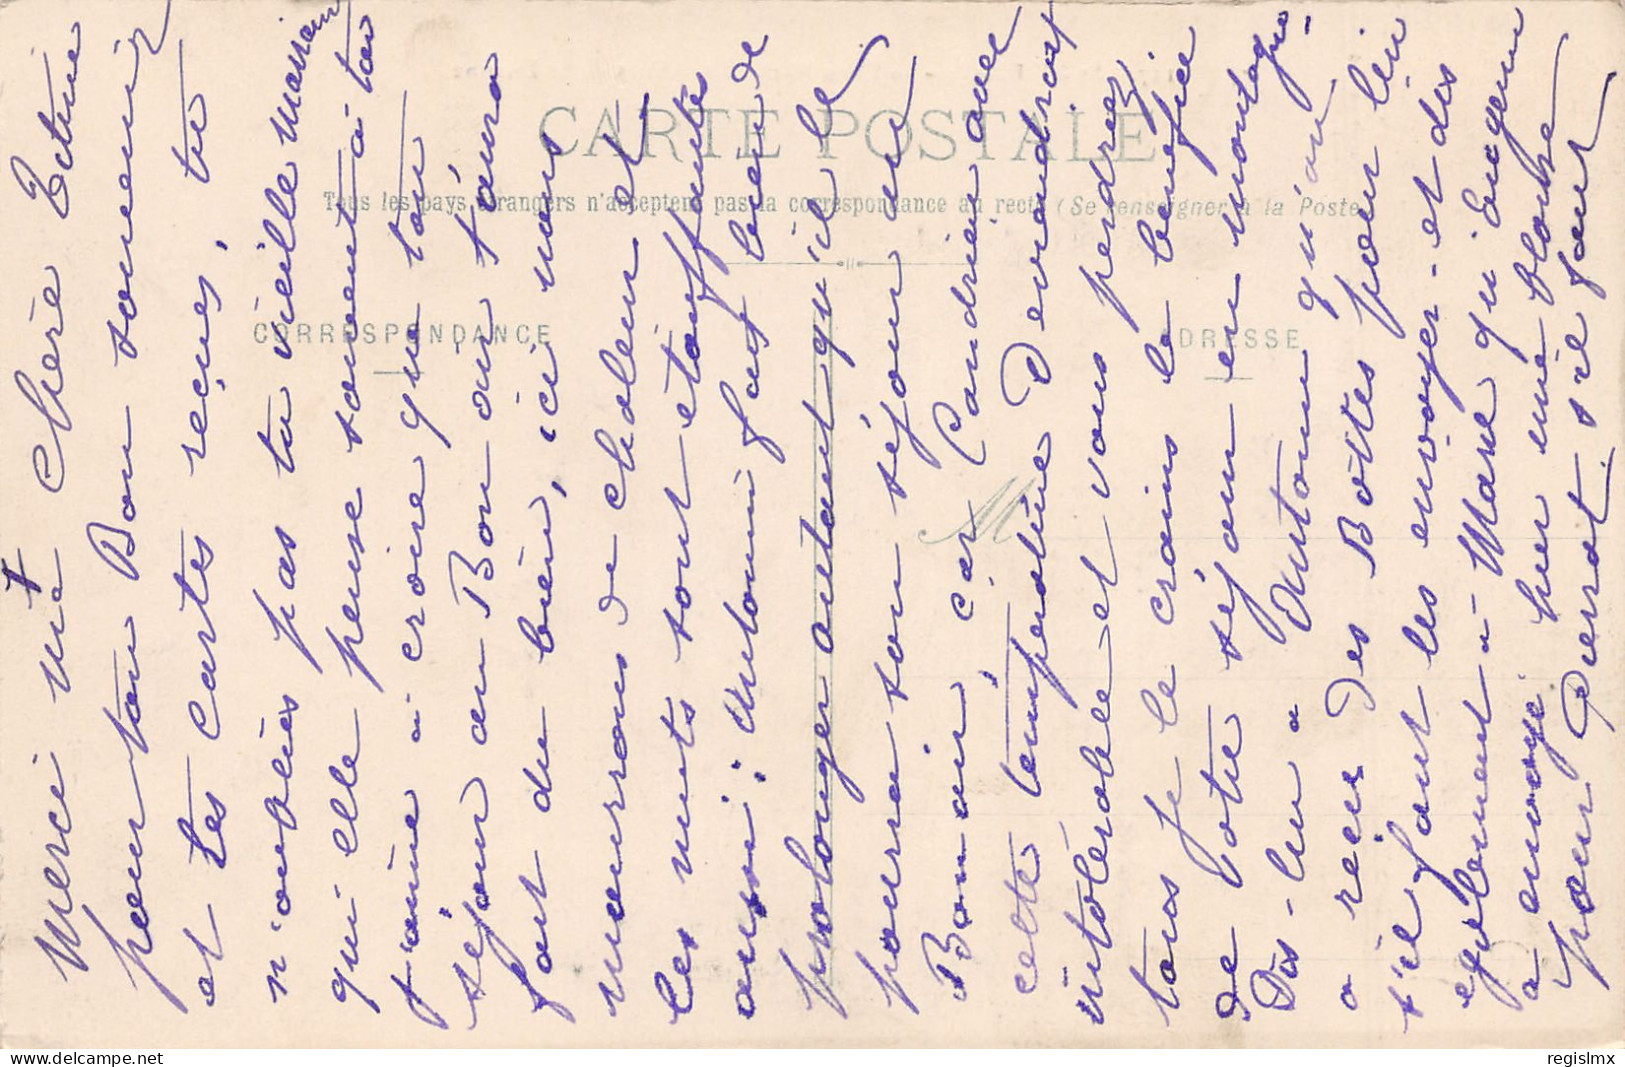 CARTE POSTALE
Tous les pays étrangers n'acceptent pas la correspondance au recto (Se renseigner à la Poste
CORRESPONDANCE
ADRESSE
Merci ma chère Titine
pour ton Bon souvenir
et tes cartes reçues, tu
n'oublies pas ta vieille
qu'elle pense souvent à toi
j'aime à croire que ton
séjour au Bon air t'aura
fait du bien, ici nous
mourrons de chaleur et
les nuits sont étouffantes
aussi; Antonin fait bien de
prolonger autant qu'il le
pourra son séjour au
Bon air, car avec
cette température Deviendrait
intolérable et vous perdrez
tous je le crains le bénéfice
de votre séjour en montagne -
Dis-lui a Antonin qu'on
a reçu des Boîtes pour lui
s'il faut les envoyer - et dis
également à Marie qu'Eugénie
a envoyé hier une blouse
pour Pierrot. s'il faut
regislmx